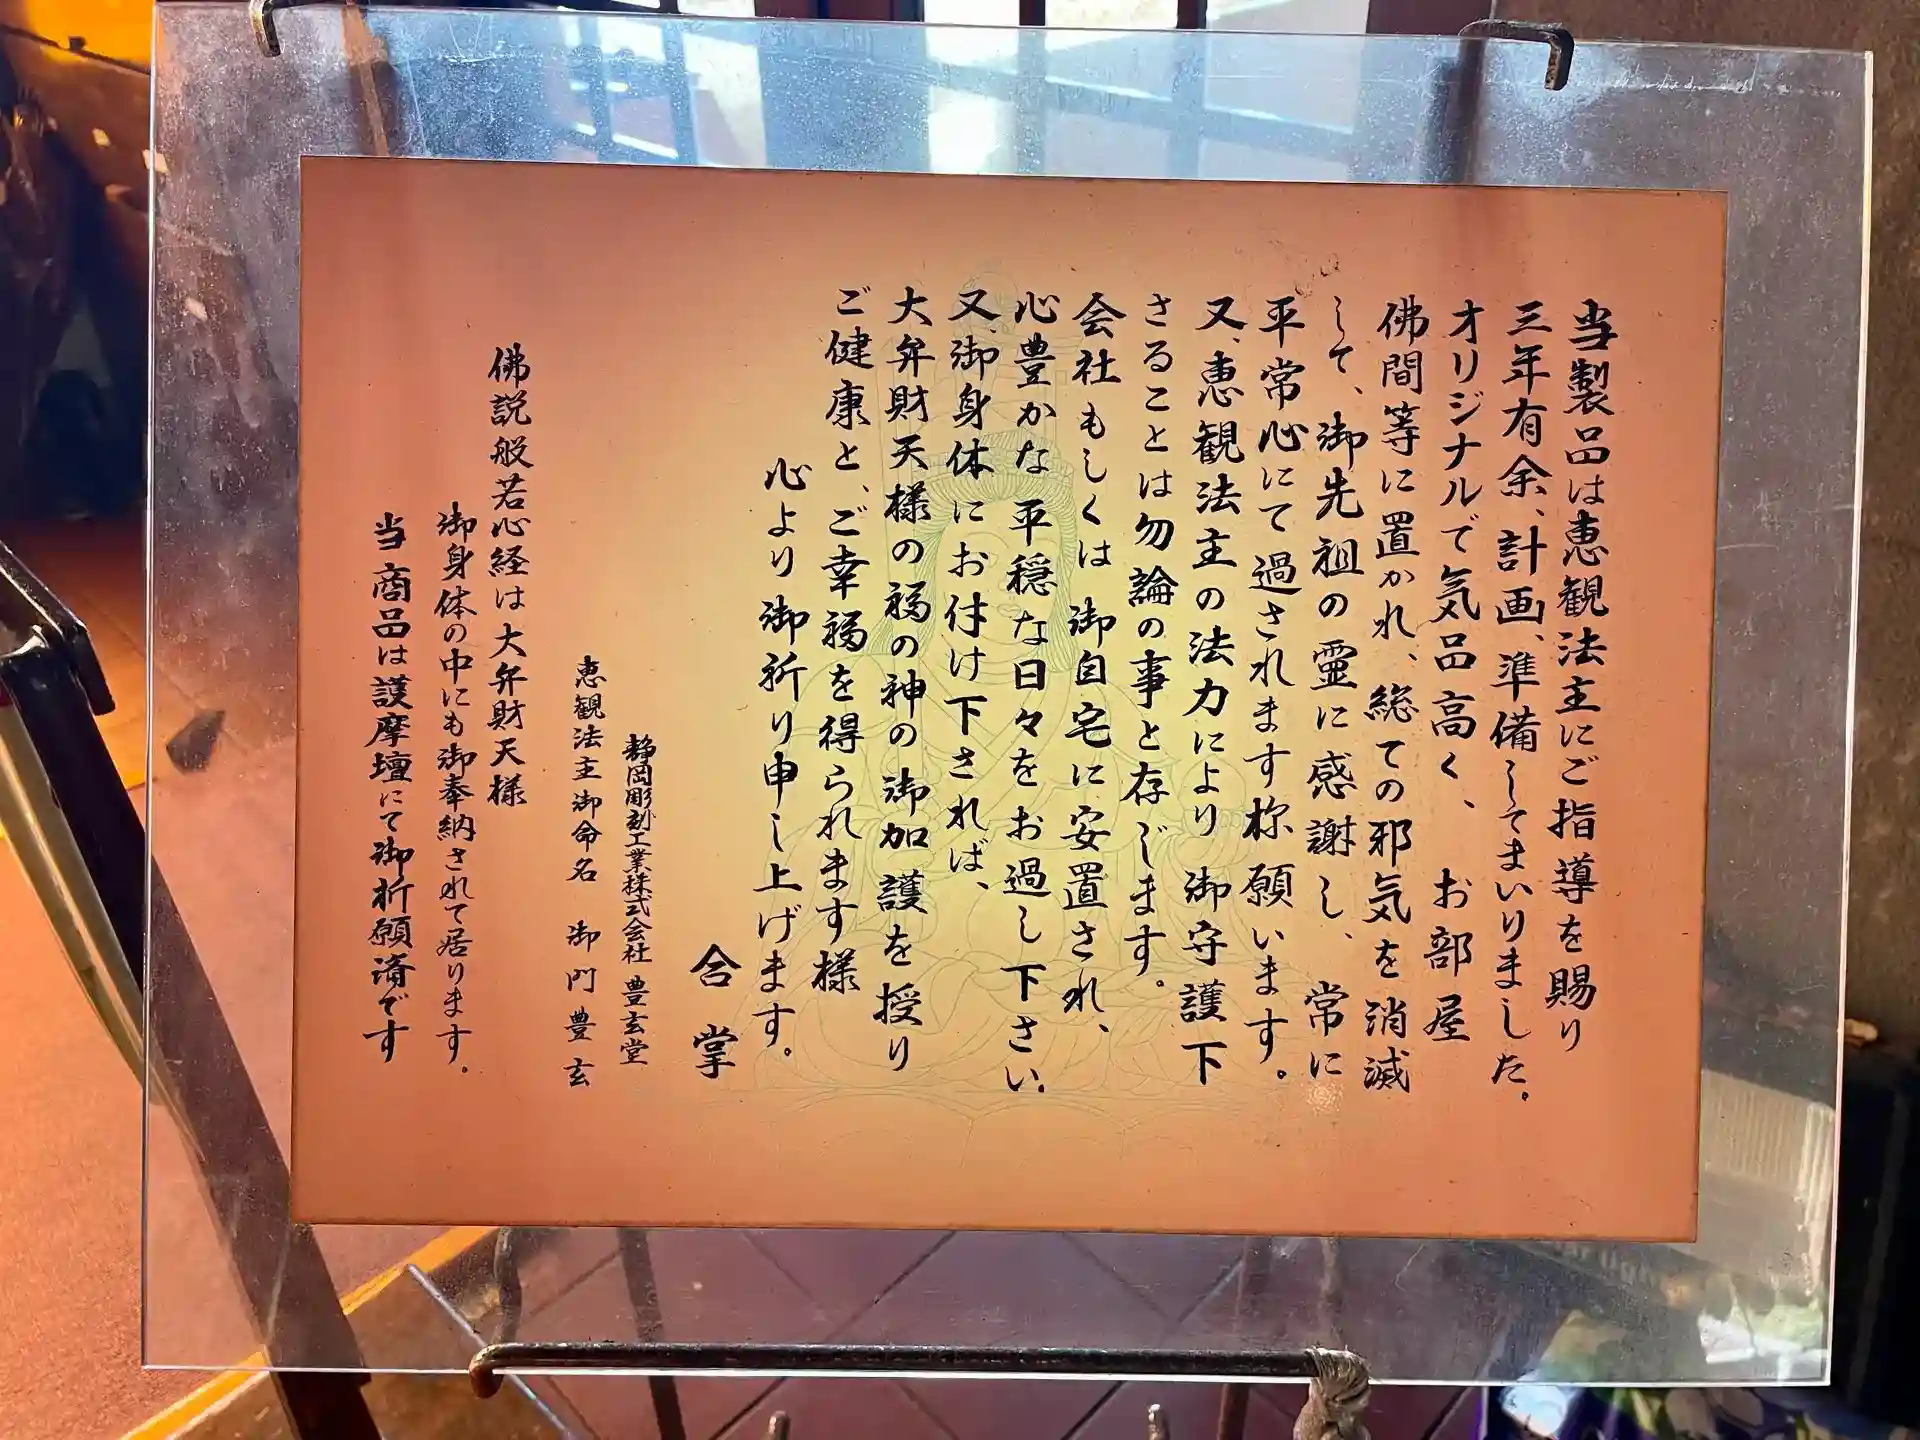 当製品は恵観法主にご指導を賜り
三年有余、計画、準備してまいりました。
オリジナルで気品高く、お部屋
佛間等に置かれ、総ての邪気を消滅
して、御先祖の霊に感謝し、常に
平常心にて過されます様願います。
又、恵観法主の法力により御守護下
さることは勿論の事と存じます。
会社もしくは御自宅に安置され、
心豊かな平穏な日々をお過し下さい。
又、御身体にお付け下されば、
大弁財天様の福の神の御加護を授り
ご健康と、ご幸福を得られます様
心より御祈り申し上げます。
合掌
静岡彫刻工業株式会社 豊玄堂
恵観法主御命名 御門豊玄
佛説般若心経は大弁財天様
御身体の中にも御奉納されて居ります。
当商品は護摩壇にて御祈願済です